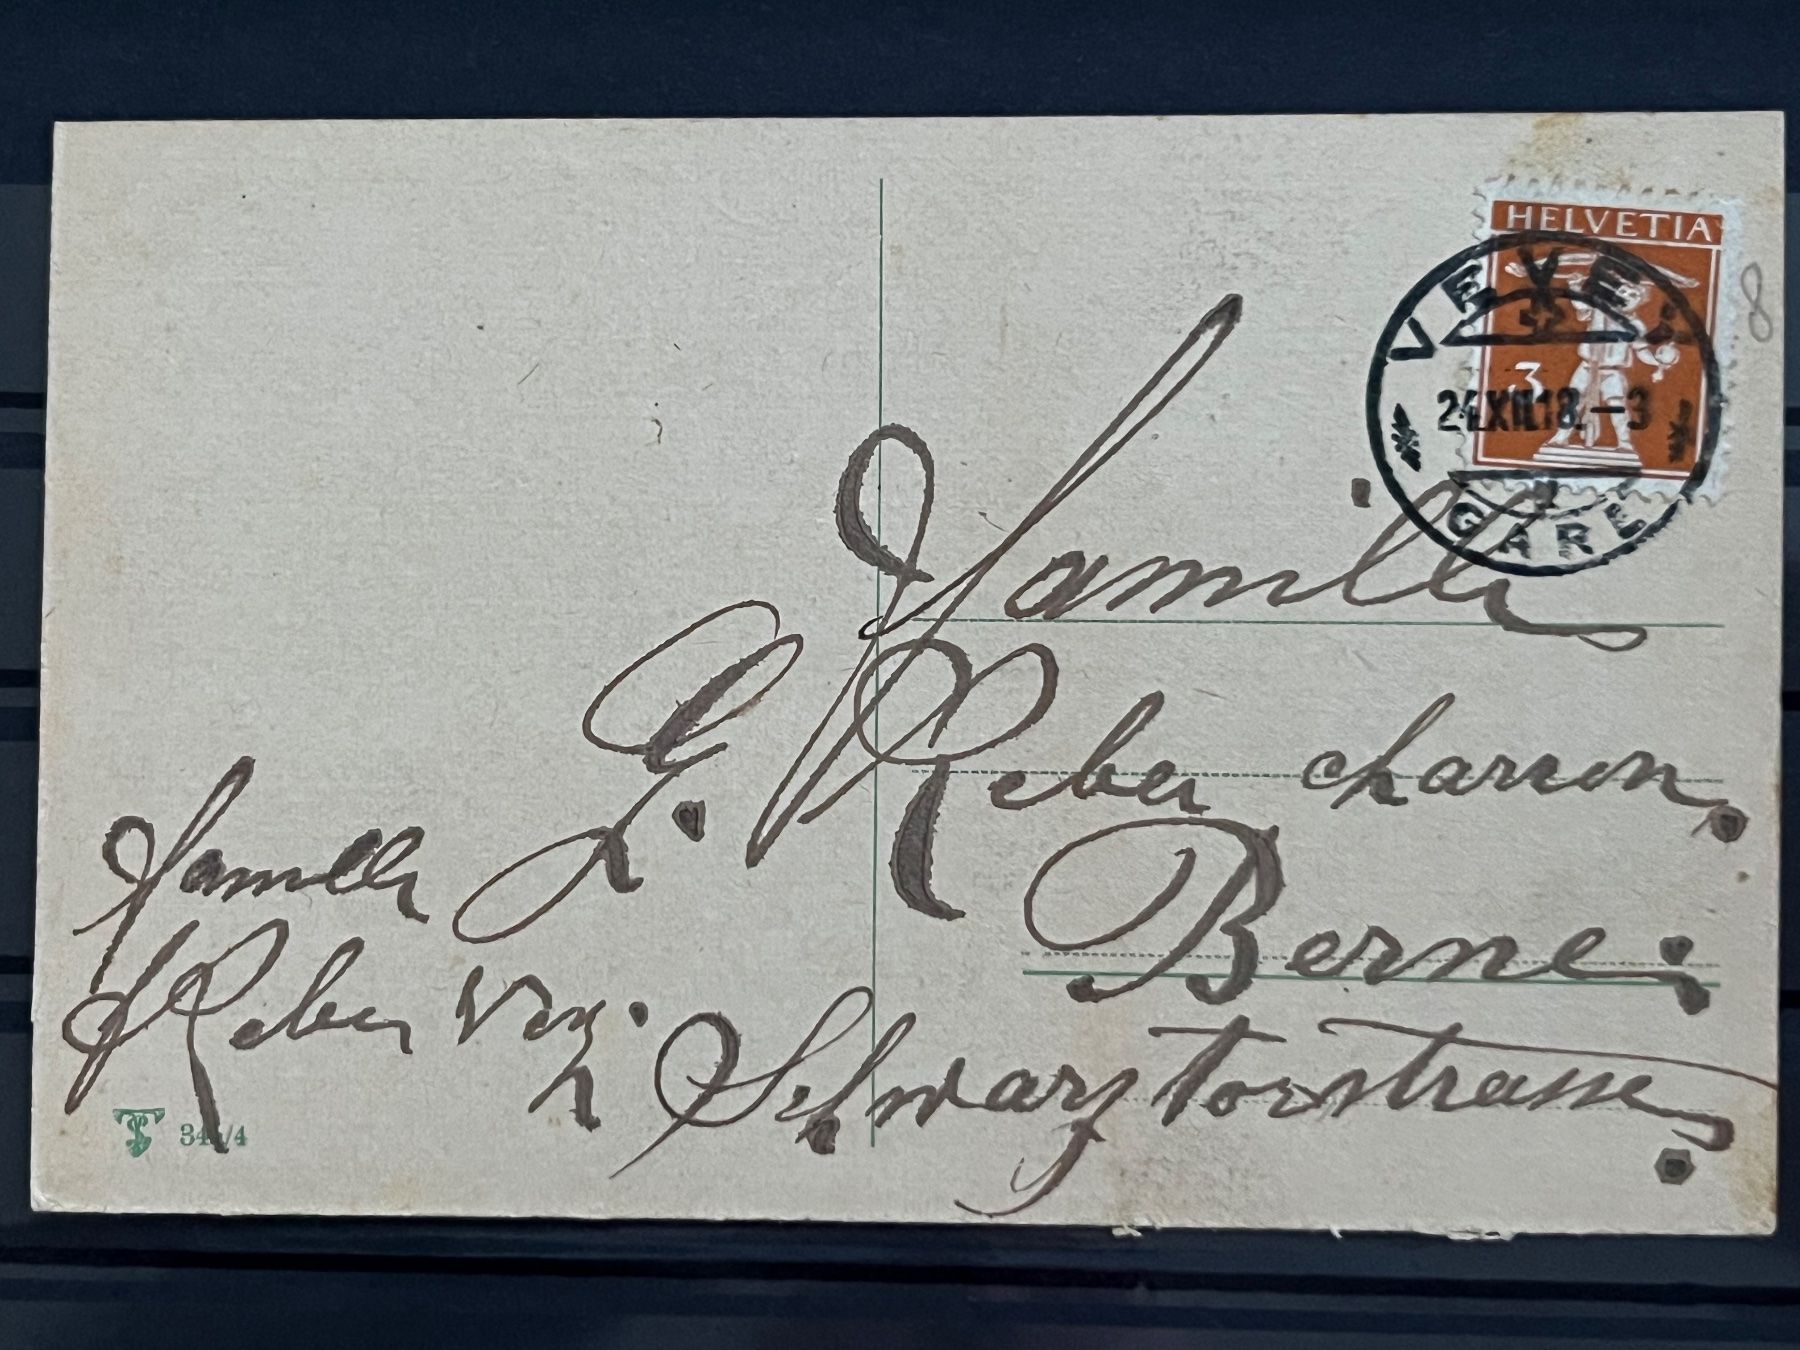 HELVETIA
3
VEVEY
24.XII.18.–3
GARE
8
Famille
G. Reber charron.
Berne.
Schwarztorstrasse.
Famille
Reber
TSN
/4